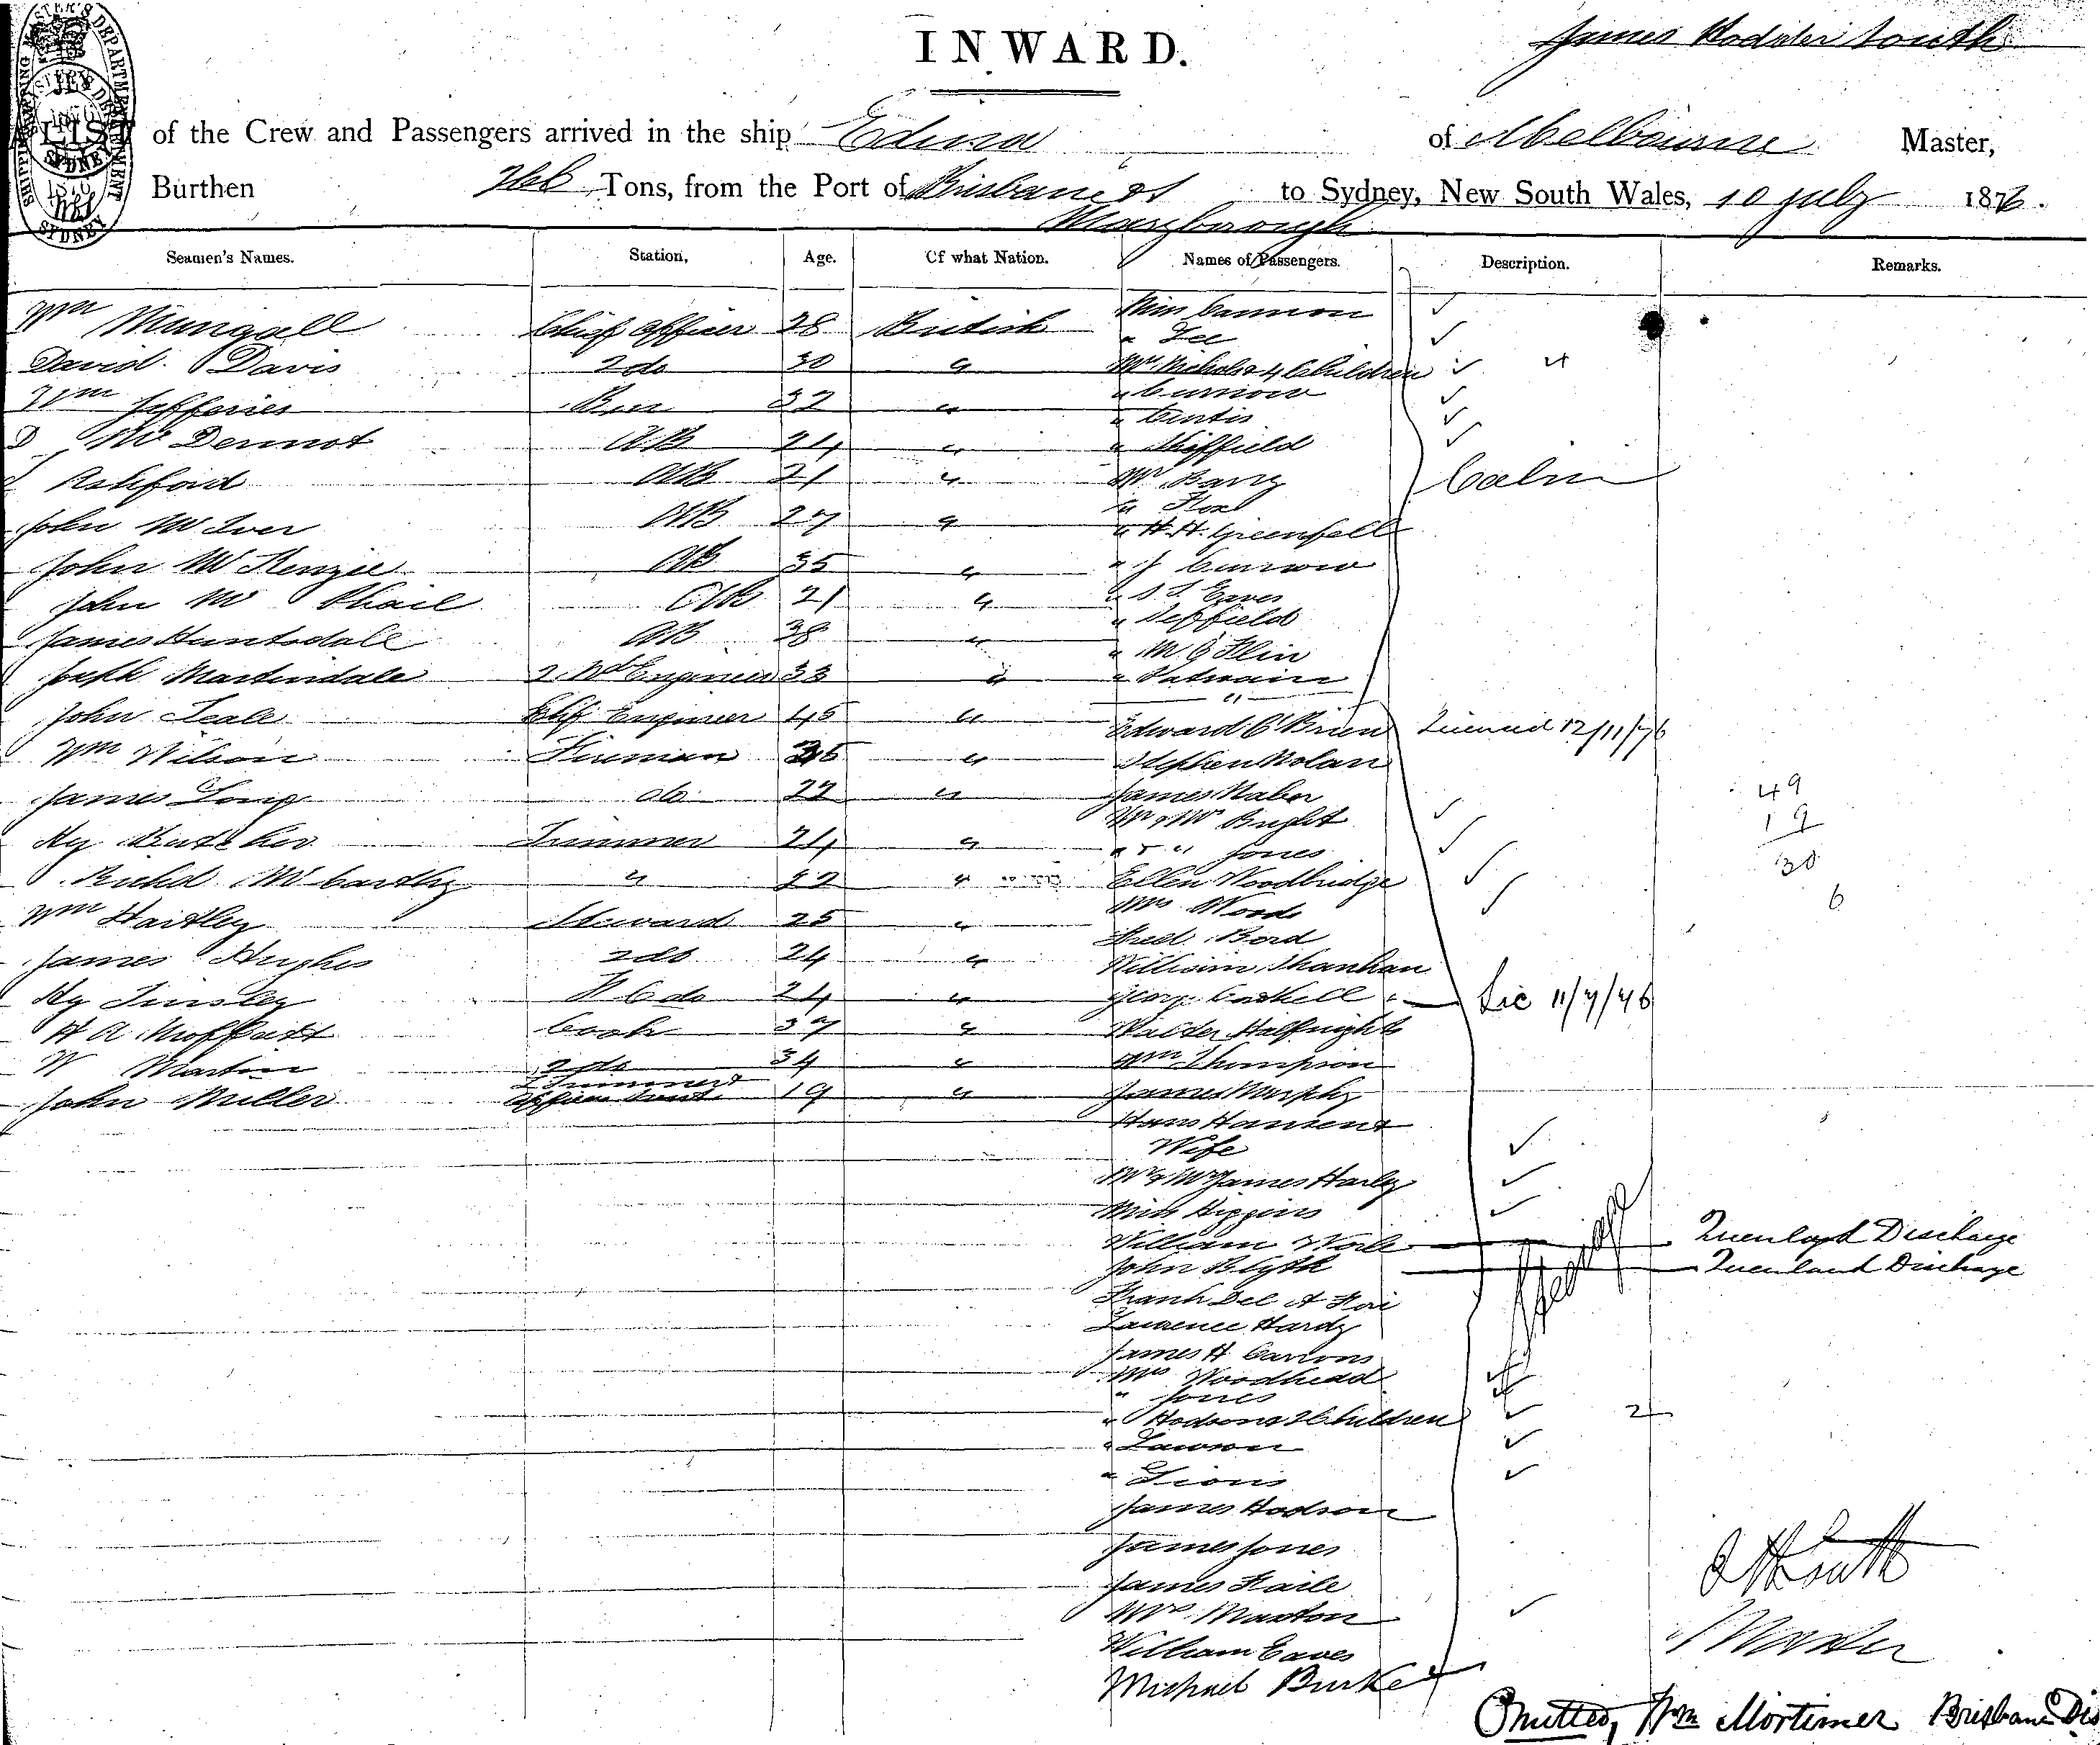 INWARD.
James Hodder South
LIST of the Crew and Passengers arrived in the ship Edina of Melbourne Master,
Burthen Tons, from the Port of Brisbane & to Sydney, New South Wales, 10 July 1876.
Maryborough
Seamen's Names. Station, Age. Of what Nation. Names of Passengers. Description. Remarks.
Wm Mungall Chief Officer 28 British Miss Cannon
" Lee
David Davis 2 do 30 " Mrs Nichols & 4 Children 4
Wm Jefferies 32 " " Curnow
" Curtis
D McDermot AB 24 " " Sheffield
Ashford AB 21 " Mr Barry Cabin
John McIver AB 27 " " H. H. Greenfell
John McKenzie AB 35 " " J Curnow
John McPhail AB 21 " " Eaves
James Huntsdale AB 38 " " Sheffield
Joseph Martindale 2nd Engineer 33 "
John Teale Chf Engineer 45 " Edward O'Brien 12/11/76
Wm Wilson Fireman " Stephen Nolan
James Long do 22 " James Maher
49
Mr & Mrs Bright
19
Hy Butcher Trimmer 24 " " & " Jones
30
Richd McCarthy " 22 " Ellen Woodbridge
6
Wm Hartley Steward 25 " Mrs Woods
James Hughes 2 do 24 " Fred Bord
William Shanhan
Hy Tinsley F C do 24 " George Caskell Lic 11/7/76
H A Moffatt Cook 37 " Walter Halfnight
W Martin 2 do 34 " Wm Thompson
John Miller 19 " James Murphy
Hans Hansen &
Wife
Mr & Mrs James Harley
Miss Higgins
William Queenland Discharge
John Blyth Queenland Discharge
Frank Del
Laurence Hardy
James H
Mrs Woodhead
" Jones
" Hodson & 2 Children 2
" Lawson
" Lions
James Hodson
James Jones
James
Mrs Maxton
William Eaves
Michael Burke
J H South
Master
Omitted, Wm Mortimer Brisbane Dis